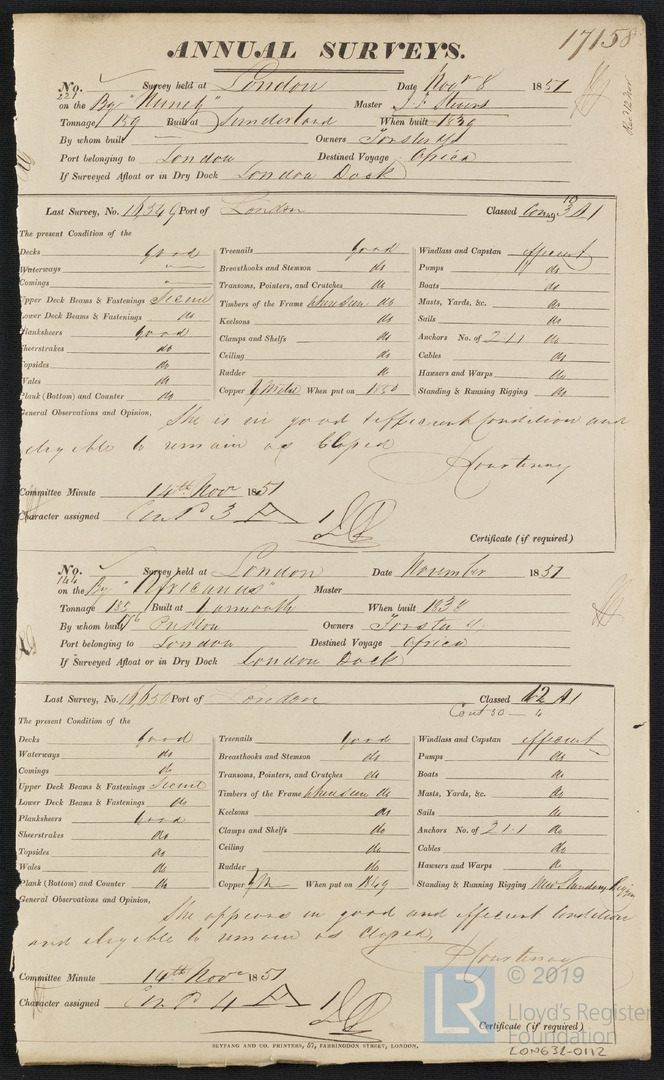 17158
ANNUAL SURVEYS.
No. Survey held at London Date Novr 8 1851
221 on the Bg Master
Tonnage 159 Built at Sunderland When built 1839
By whom built — Owners Forster &
Port belonging to London Destined Voyage Africa
If Surveyed Afloat or in Dry Dock London Dock
Last Survey, No. Port of London Classed A1
The present Condition of the
Decks good Treenails good Windlass and Capstan efficient
Waterways " Breasthooks and Stemson do Pumps do
Comings " Transoms, Pointers, and Crutches do Boats do
Upper Deck Beams & Fastenings Timbers of the Frame when seen do Masts, Yards, &c. do
Lower Deck Beams & Fastenings do Keelsons do Sails do
Planksheers good Clamps and Shelfs do Anchors No. of 2.1.1 do
Sheerstrakes do Ceiling do Cables do
Topsides do Rudder do Hawsers and Warps do
Wales do Copper When put on 1850 Standing & Running Rigging do
Plank (Bottom) and Counter do
General Observations and Opinion, She is in good & efficient Condition and
eligible to remain as Classed
Courtenay
Committee Minute 14th Novr 1851
Character assigned 3 A 1
Certificate (if required)
No. Survey held at London Date November 1851
144 on the Bg "Africanus" Master
Tonnage 185 Built at Yarmouth When built 1838
By whom built Preston Owners Forster &
Port belonging to London Destined Voyage Africa
If Surveyed Afloat or in Dry Dock London Dock
Last Survey, No. Port of London Classed 12 A1
Cont 50 — 4
The present Condition of the
Decks Good Treenails good Windlass and Capstan efficient
Waterways do Breasthooks and Stemson do Pumps do
Comings do Transoms, Pointers, and Crutches do Boats do
Upper Deck Beams & Fastenings Timbers of the Frame when seen do Masts, Yards, &c. do
Lower Deck Beams & Fastenings do Keelsons do Sails do
Planksheers Good Clamps and Shelfs do Anchors No. of 2.1.1 do
Sheerstrakes do Ceiling do Cables do
Topsides do Rudder do Hawsers and Warps do
Wales do Copper YM When put on 1849 Standing & Running Rigging New Standing Rigging
Plank (Bottom) and Counter do
General Observations and Opinion,
She appears in good and efficient Condition
and eligible to remain as Classed,
Courtenay
Committee Minute 14th Novr 1851
Character assigned 4 A 1
Certificate (if required)
SEYFANG AND CO. PRINTERS, 57, FARRINGDON STREET, LONDON.
LR © 2019
Lloyd's Register
Foundation
LON632-0112